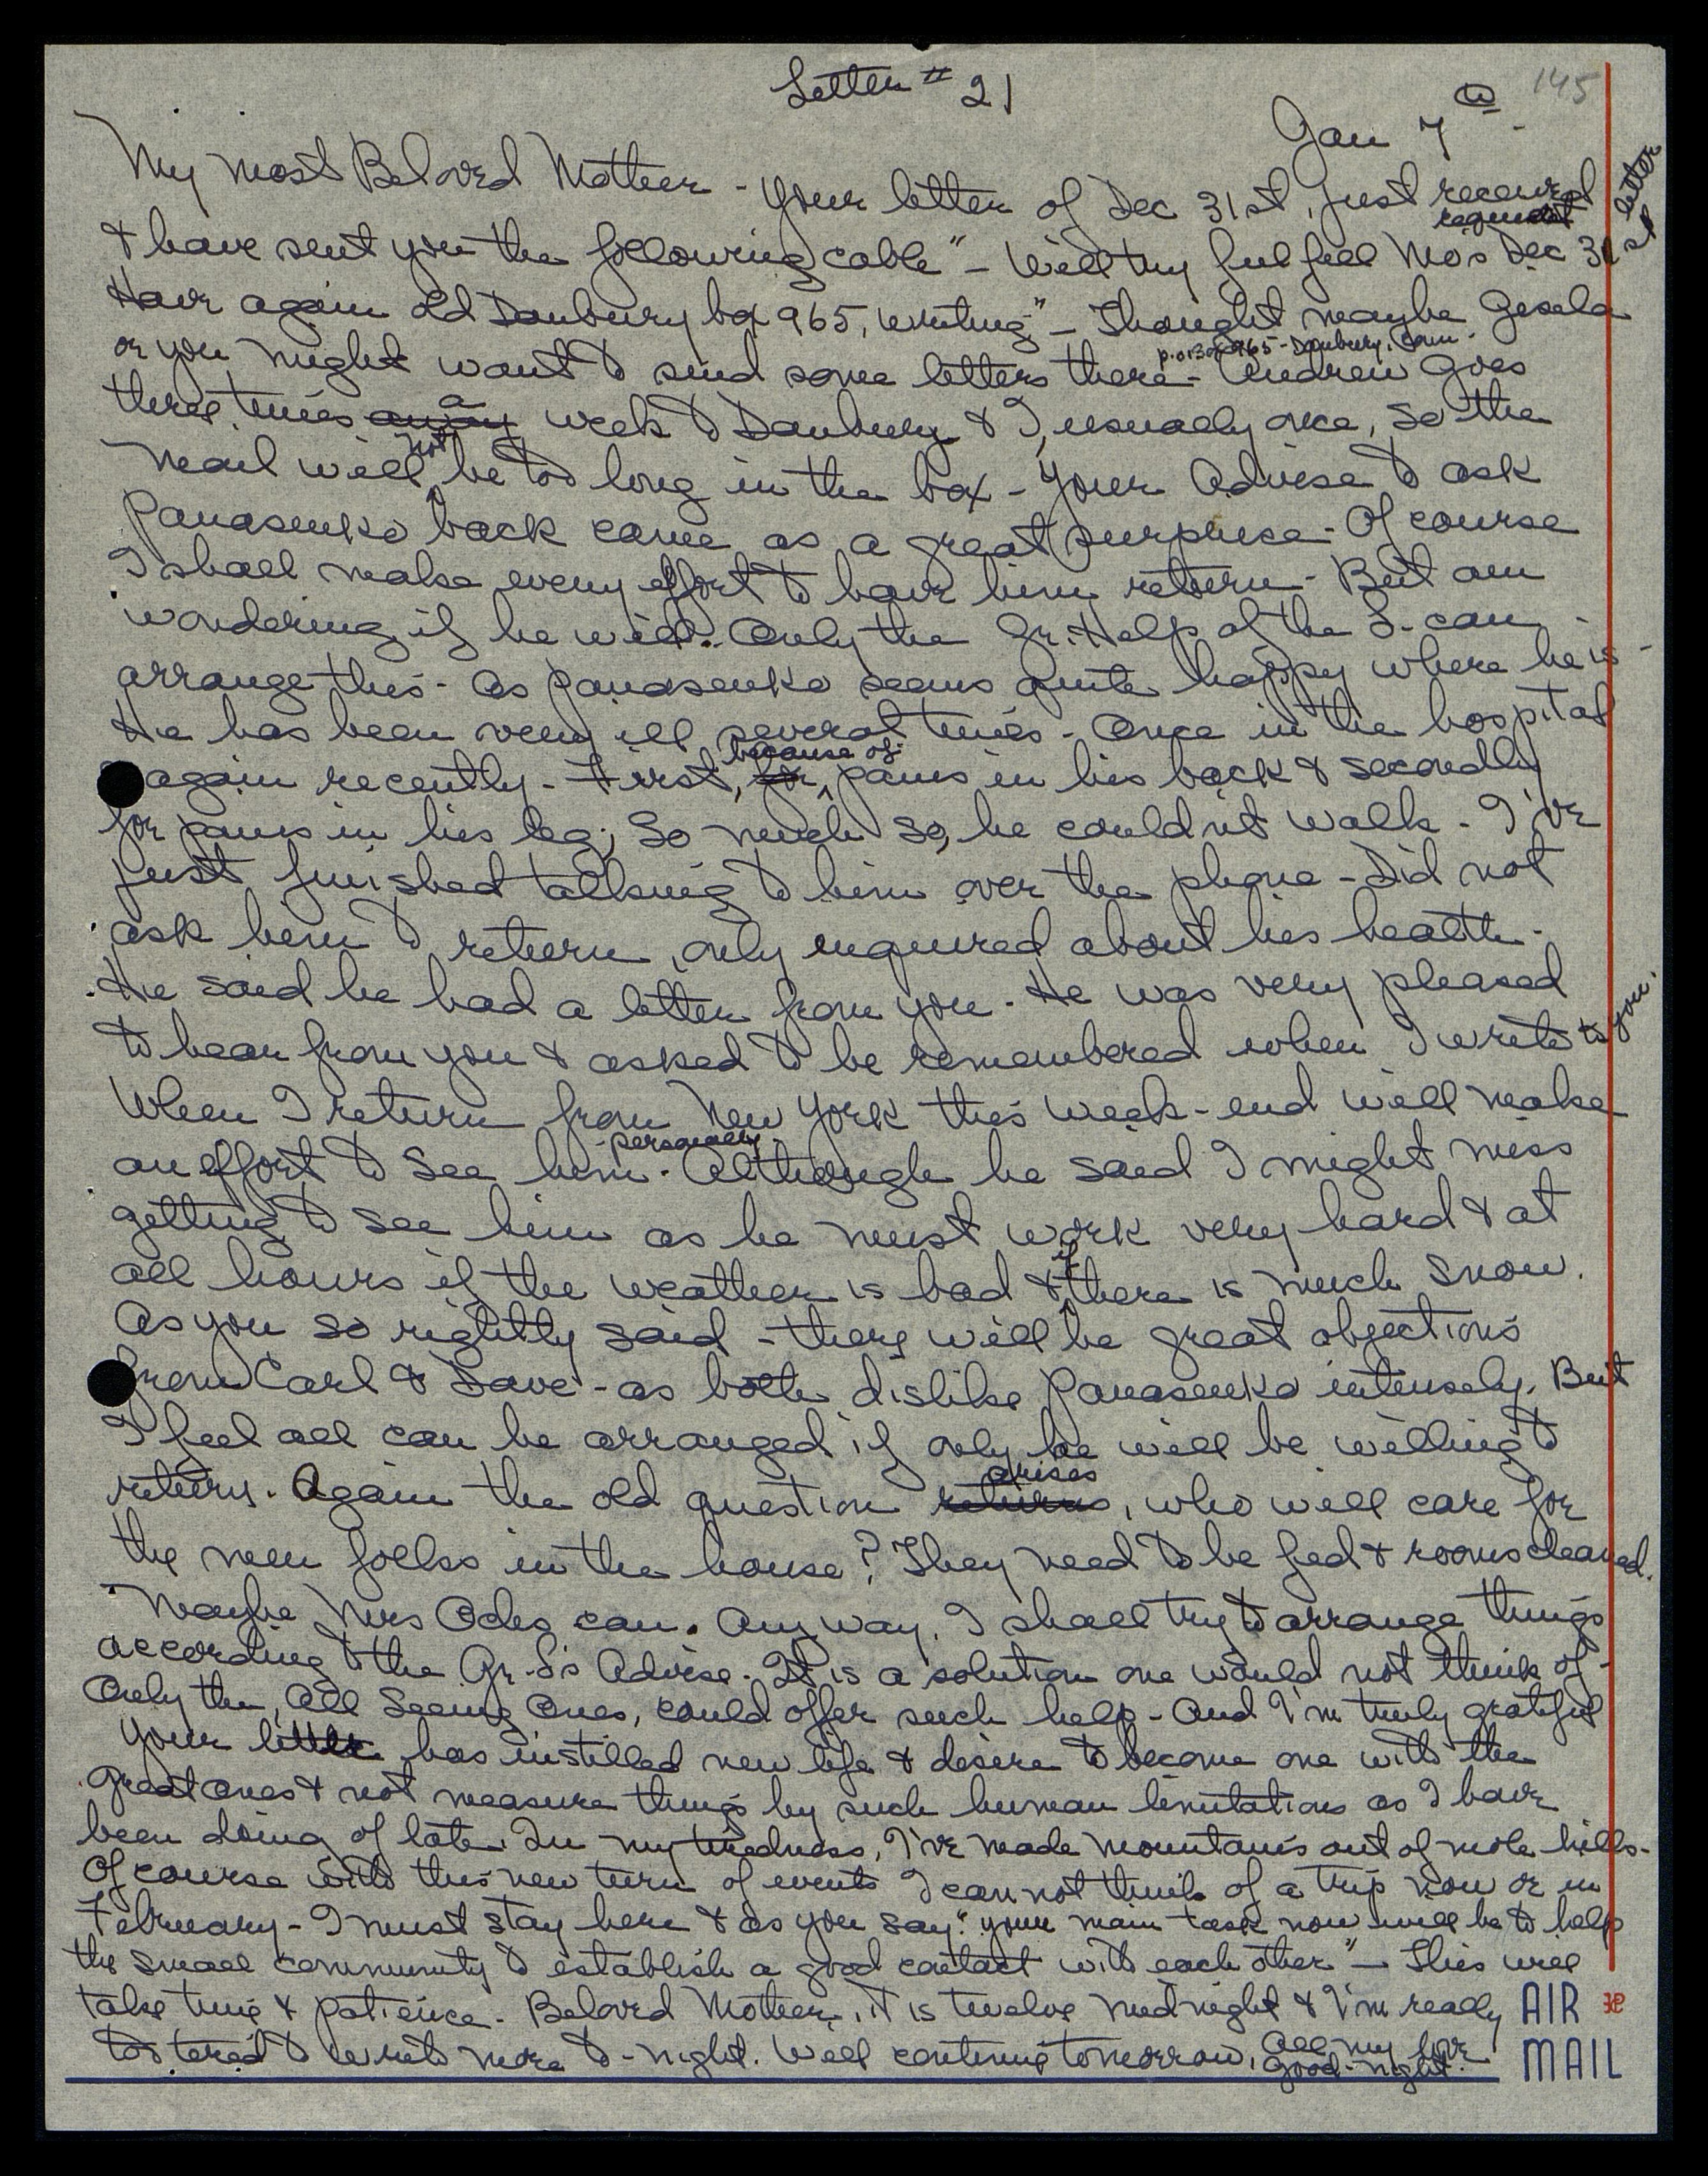 Letter # 21
145
Jan 7 -
My most Beloved Mother - Your letter of Dec 31st, just received
& have sent you the following cable "- Will try fulfill Mo's Dec 31st letter request
Have again old Danbury box 965, writing" - Thought maybe Gesela
or you might want to send some letters there - P.O. Box 965 - Danbury, Conn. Andrew goes
three times away a week to Danbury & I, usually once, so the
mail will not be too long in the box - Your Advise to ask
Panasenko back came as a great surprise - Of course
I shall make every effort to have him return - But am
wondering, if he will. Only the Gr. Help of the L. can
arrange this - as Panasenko seems quite happy where he is -
He has been very ill several times - Once in the hospital
again recently - First, for, because of pains in his back & secondly
for pains in his leg; So much so, he could'nt walk - I've
just finished talking to him over the phone - Did not
ask him to return, only inquired about his health -
He said he had a letter from you. He was very pleased
to hear from you & asked to be remembered when I write to you.
When I return from New York this week-end will make
an effort to see him - personally. Although he said I might miss
getting to see him as he must work very hard & at
all hours if the weather is bad & if there is much snow.
As you so rightly said - there will be great objections
from Carl & Dave - as both dislike Panasenko intensely. But
I feel all can be arranged if only he will be willing to
return. Again the old question returns arises, who will care for
the men folks in the house? They need to be fed & rooms cleaned.
Maybe Mrs can. Anyway, I shall try to arrange things
according to the Gr. L's Advise. It is a solution one would not think of -
Only the, All Seeing Ones, could offer such help - And I'm truly grateful
Your letter has instilled new life & desire to become one with the
Great Ones & not measure things by such human limitations as I have
been doing of late. In my tiredness, I've made mountains out of mole hills -
Of course with this new turn of events I cannot think of a trip now or in
February - I must stay here & as you say "your main task now will be to help
the small community to establish a good contact with each other" - This will
take time & patience. Beloved Mother, it is twelve midnight & I'm really
too tired to write more to-night. Will continue tomorrow, All my love
good-night.
AIR
MAIL